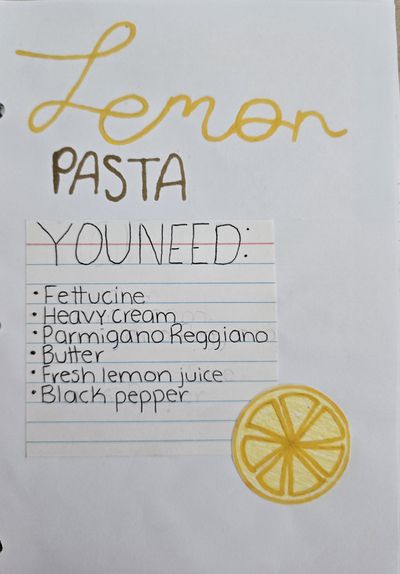 Lemon
PASTA
YOU NEED:
• Fettucine
• Heavy cream
• Parmigano Reggiano
• Butter
• Fresh lemon juice
• Black pepper